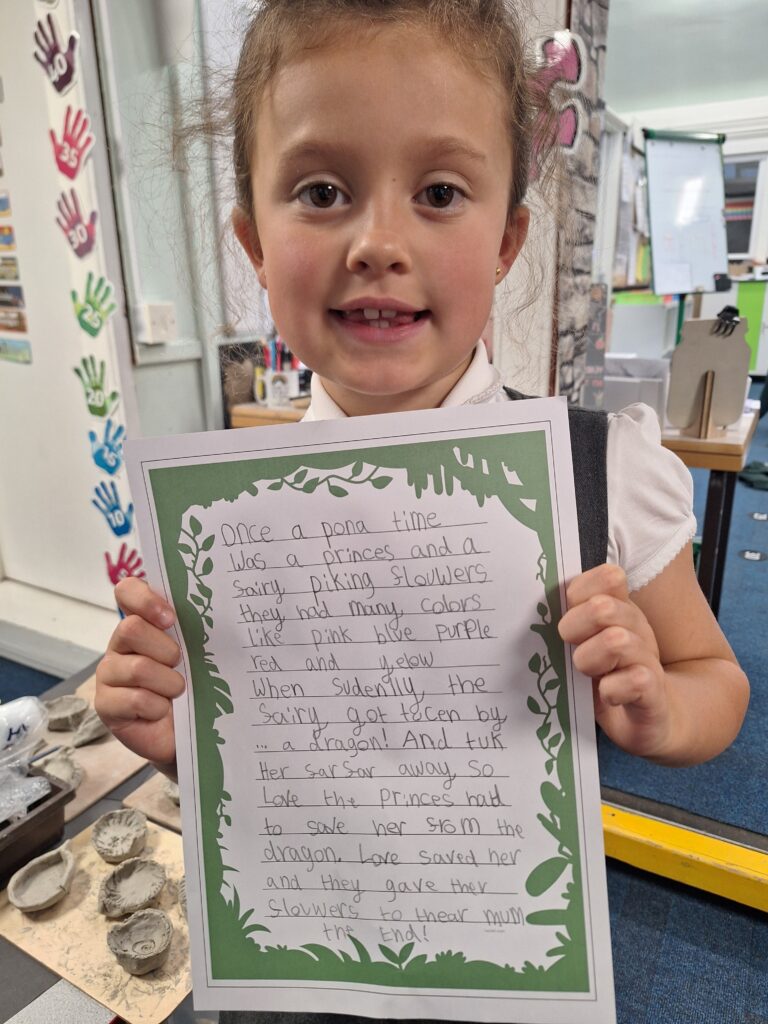 40
35
30
25
20
10
Once a pona time
was a princes and a
fairy piking flouwers
they had many colors
like pink blue purple
red and yelow
When sudenlly the
fairy got tocen by
... a dragon! And tuk
Her farfar away. So
Love the Princes had
to save her from the
dragon. Love saved her
and they gave ther
flouwers to thear mum
the End!